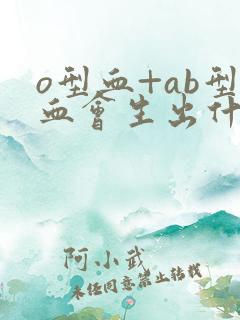 o型血+ab型
血會生出什
阿小武
未经同意禁止转载